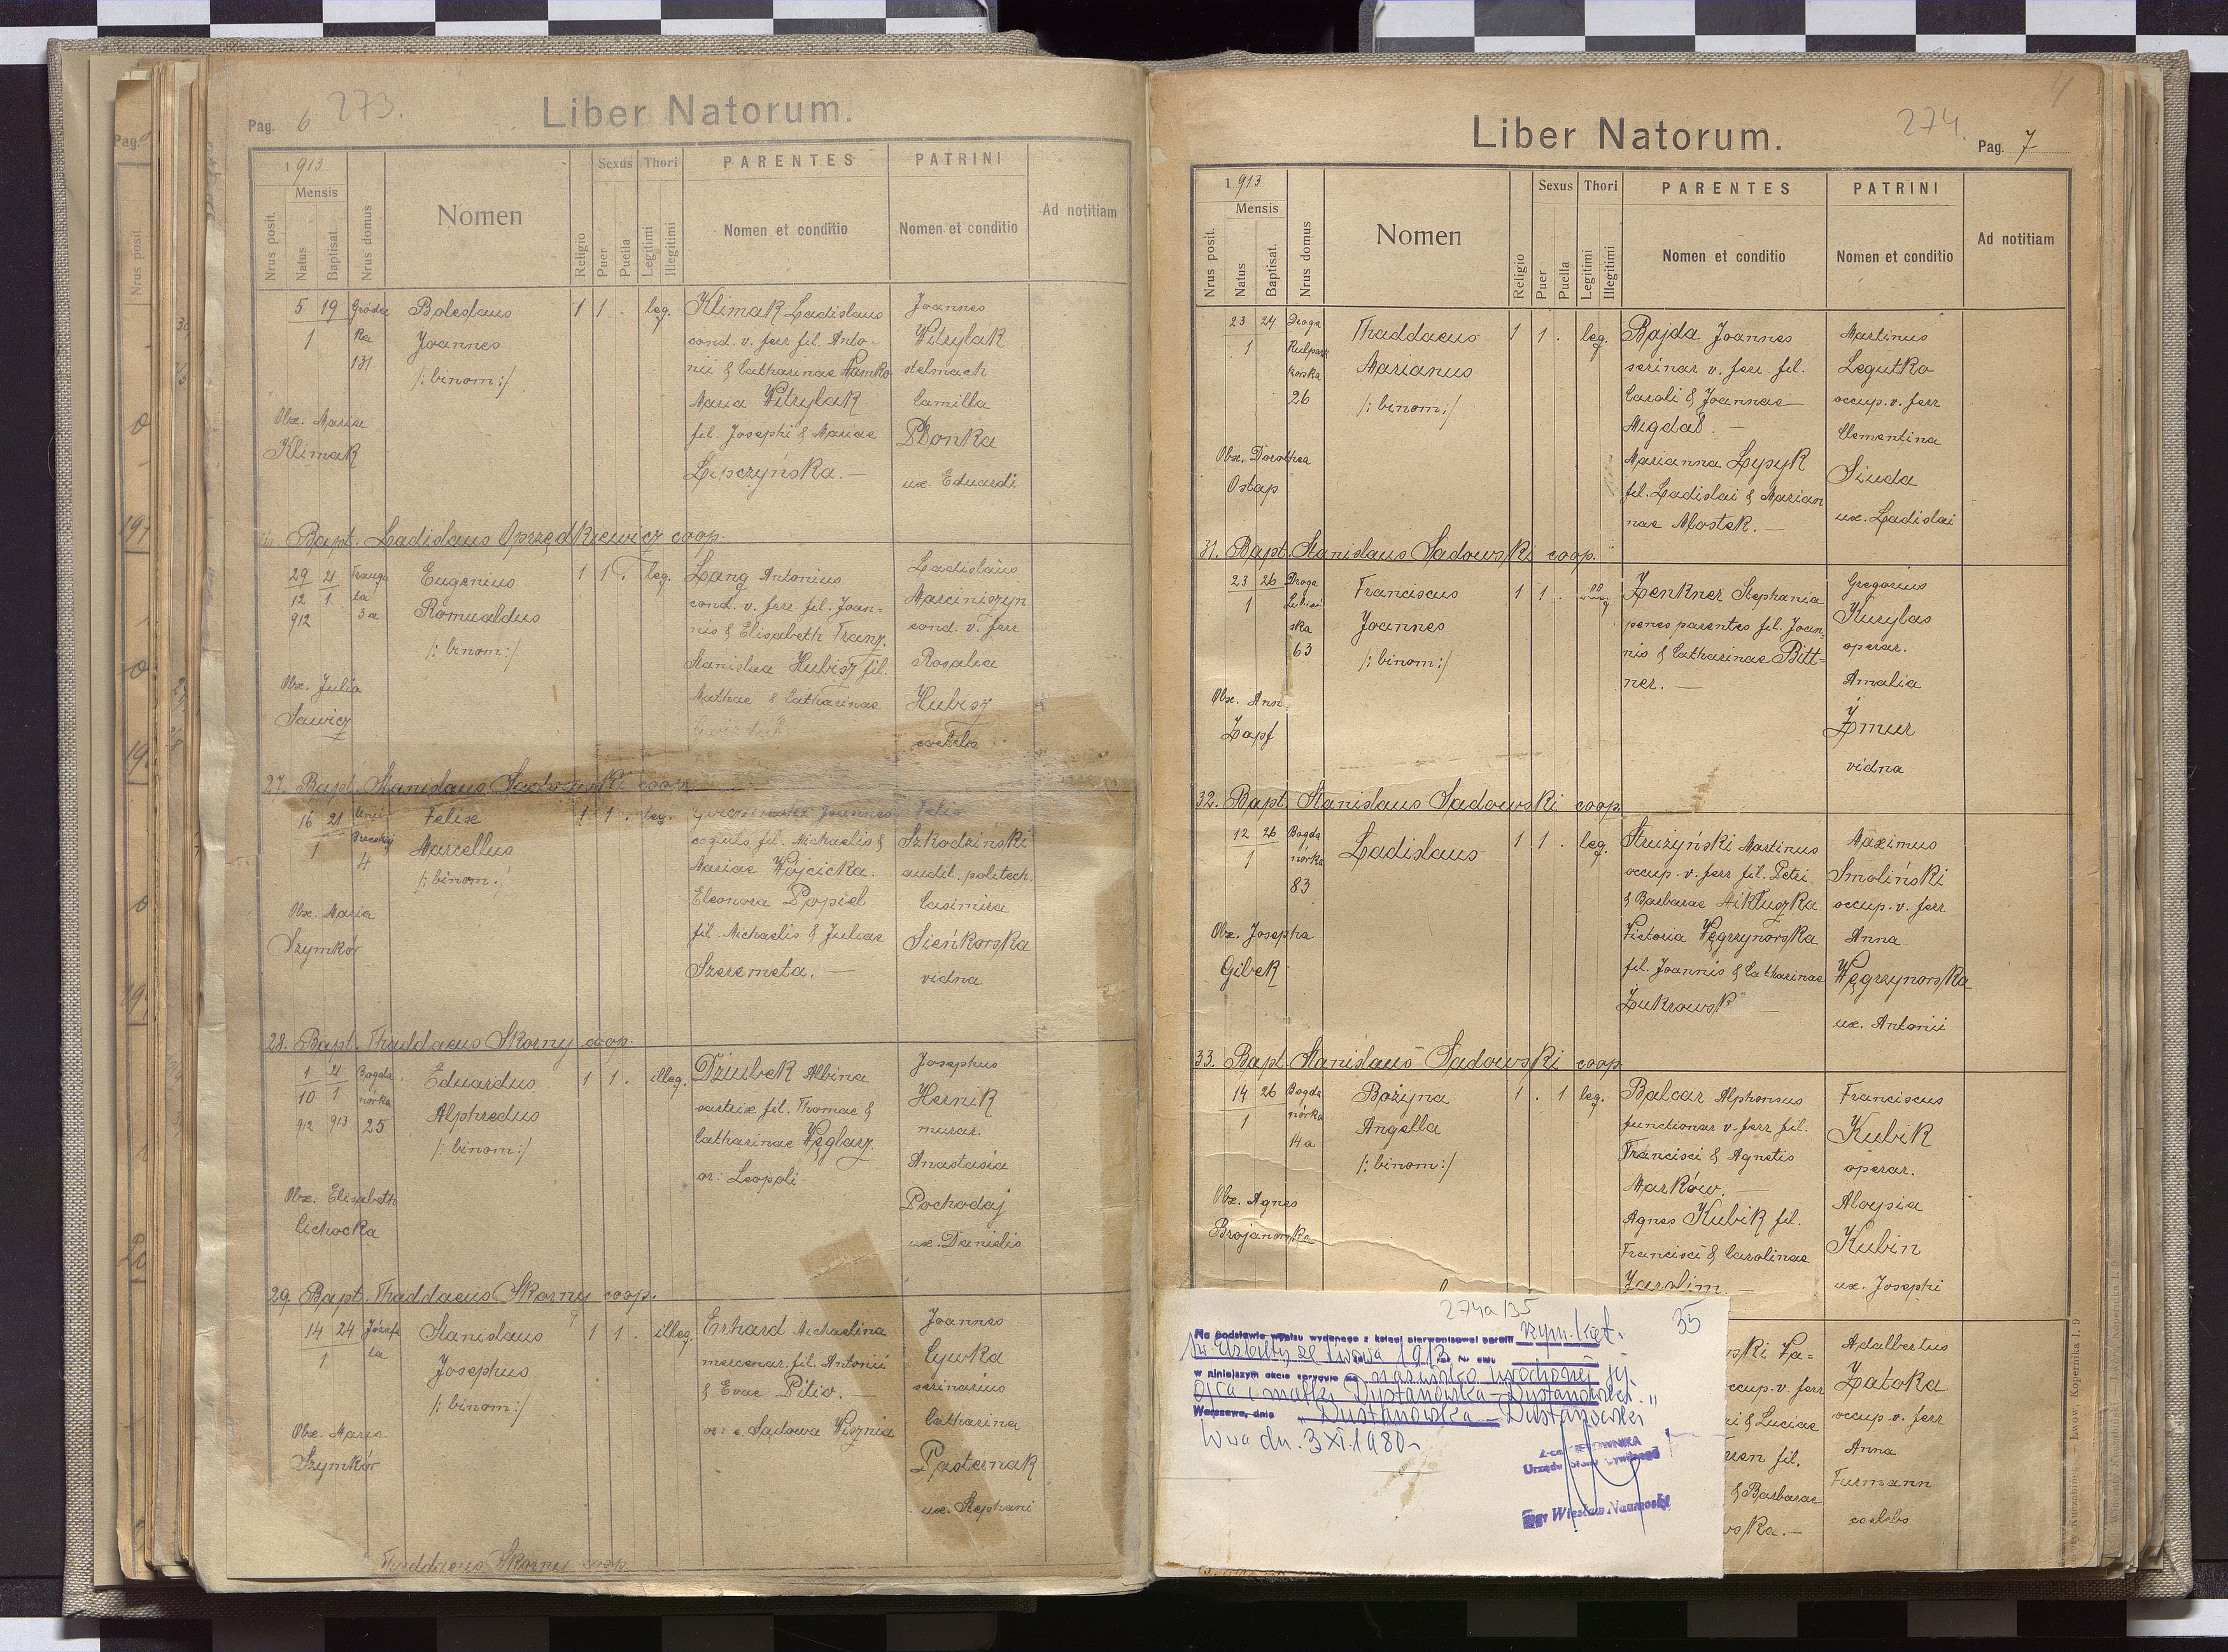 Pag. 6 273.
Liber Natorum.
1913
Mensis
Nrus posit.
Natus
Baptisat.
Nrus domus
Nomen
Religio
Sexus
Puer
Puella
Thori
Legitimi
Illegitimi
PARENTES
Nomen et conditio
PATRINI
Nomen et conditio
Ad notitiam
5 19 Gródec Boleslaus 1 1 . leg. Klimak Ladislaus Joannes
1 ka Joannes cond. v. ferr fil. Anto- Witrylak
131 /: binom:/ nii & Catharinae stelmach
Maria Witrylak Camilla
Obx. Maria fil. Josephi & Mariae Płonka
Klimak Lipczyńska. — ux. Eduardi
Bapt. Ladislaus Oprzędkiewicz coop.
29 21 Eugenius 1 1 . leg. Lang Antonius Ladislaus
12 1 Romualdus cond. v. ferr fil. Joan- Marciniszyn
912 3a /: binom:/ nis & Elisabeth Franz. cond. v. ferr
Stanislaa Hubisz fil. Rosalia
Obx. Julia Mathae & Catharinae Hubisz
Sawicz coelebs
27. Bapt. Stanislaus Sadowski coop.
16 21 Felix 1 1 . leg. Joannes Felix
1 Marcellus coquus, fil. Michaelis & Szkodzinski
4 /: binom: Mariae Wojcicka. audit. politech.
Obx. Maria Eleonora Popiel Casimira
Szymkór fil. Michaelis & Juliae Sieńkowska
Szeremeta. — vidna
28. Bapt. Thaddaeus Skorny coop.
1 21 Bogda Eduardus 1 1 . illeg. Dziubek Albina Josephus
10 1 nórka Alphredus sartrix fil. Thomae & Hernik
912 913 25 /: binom:/ Catharinae Węglarz. murar.
or: Leopoli Anastasia
Obx. Elisabeth Pochodaj
Cichocka ux. Danielis
29. Bapt. Thaddaeus Skorny coop.
14 24 Józefa Stanislaus 1 1 . illeg. Erhard Michaelina Joannes
1 ta Josephus mercenar. fil. Antonii Cywka
/: binom:/ & Evae Pitio. — serinarius
Obx. Maria or: e Sadowa Wisznia Catharina
Szymkór Pasternak
ux. Stephani
Thaddaeus Skorny coop.
Liber Natorum.
274.
Pag. 7
1913
Mensis
Nrus posit.
Natus
Baptisat.
Nrus domus
Nomen
Religio
Sexus
Puer
Puella
Thori
Legitimi
Illegitimi
PARENTES
Nomen et conditio
PATRINI
Nomen et conditio
Ad notitiam
23 24 Droga Thaddaeus 1 1 . leg. Bajda Joannes Martinus
1 Kulpar Marianus serinar v. ferr. fil. Legutko
kowska /: binom:/ Caroli & Joannae occup. v. ferr
26 Migdał. — Clementina
Obx. Dorothea Marianna Lypyk Siuda
Ostap fil. Ladislai & Marian ux. Ladislai
nae Mostek. —
31. Bapt. Stanislaus Sadowski coop.
23 26 Droga Franciscus 1 1 . Zenkner Stephania Gregorius
1 Lubień Joannes penes parentes fil. Joan- Kurylas
ska /: binom:/ nis & Catharinae Bitt- operar.
63 ner. — Amalia
Obx. Ann. Żmur
Zapf vidna
32. Bapt. Stanislaus Sadowski coop.
12 26 Bogda Ladislaus 1 1 . leg. Strużyński Martinus Maximus
1 nórka occup. v. ferr fil. Petri Smoliński
83 & Barbarae Mikłuszka occup. v. ferr
Obx. Josepha Victoria Węgrzynowska Anna
Gibek fil. Joannis & Catharinae Węgrzynowska
Żukrowsk — ux. Antonii
33. Bapt. Stanislaus Sadowski coop.
14 26 Bogda Bożyna 1 . 1 leg. Balcar Alphonsus Franciscus
1 nórka Angella functionar v. ferr fil. Kubik
14a /: binom:/ Francisci & Agnetis operar.
Marków. — Aloysia
Obx. Agnes Agnes Kubik fil. Kubin
Brojanowska Francisci & Carolinae ux. Josephi
Jarolim. —
ski Fa= Adalbertus
occup. v. ferr Zatoka
i & Luciae occup. v. ferr
fil. Anna
& Barbarae Furmann
ska. — coelebs
274a/35 35
Na podstawie wpisu wydanego z księgi pierwopisowej parafii rzym. kat.
św Elżbiety ze Lwowa 1913
w niniejszym akcie nazwisko urodzonej jej
ojca i matki Dystanowska – Dystanowski
Warszawa, dnia "Dustanowska – Dustanowski
W-wa dn. 3 XI. 1980 r.
Z-ca KIEROWNIKA
Urzędu Stanu Cywilnego
mgr Wiesław Naumoski
Lwów, Kopernika l. 9